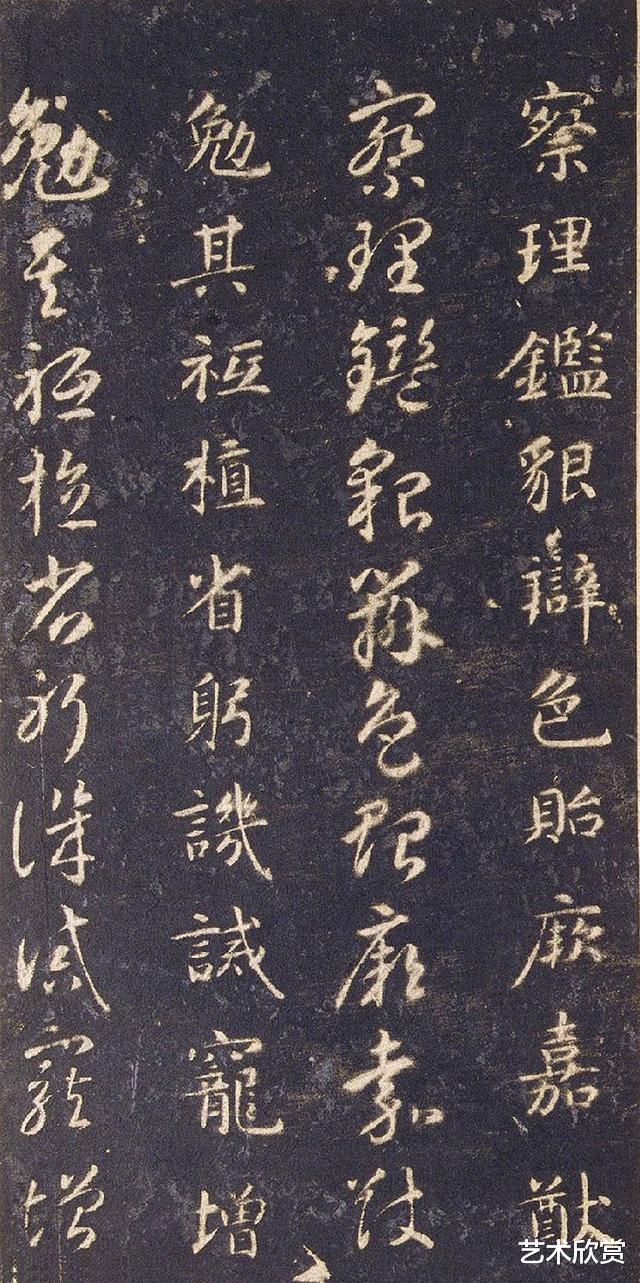 察理鑑貌辯色貽厥嘉猷
察理鑑貌辯色貽厥嘉猷
勉其祗植省躬譏誡寵增
勉其祗植省躬譏誡寵增
艺术欣赏